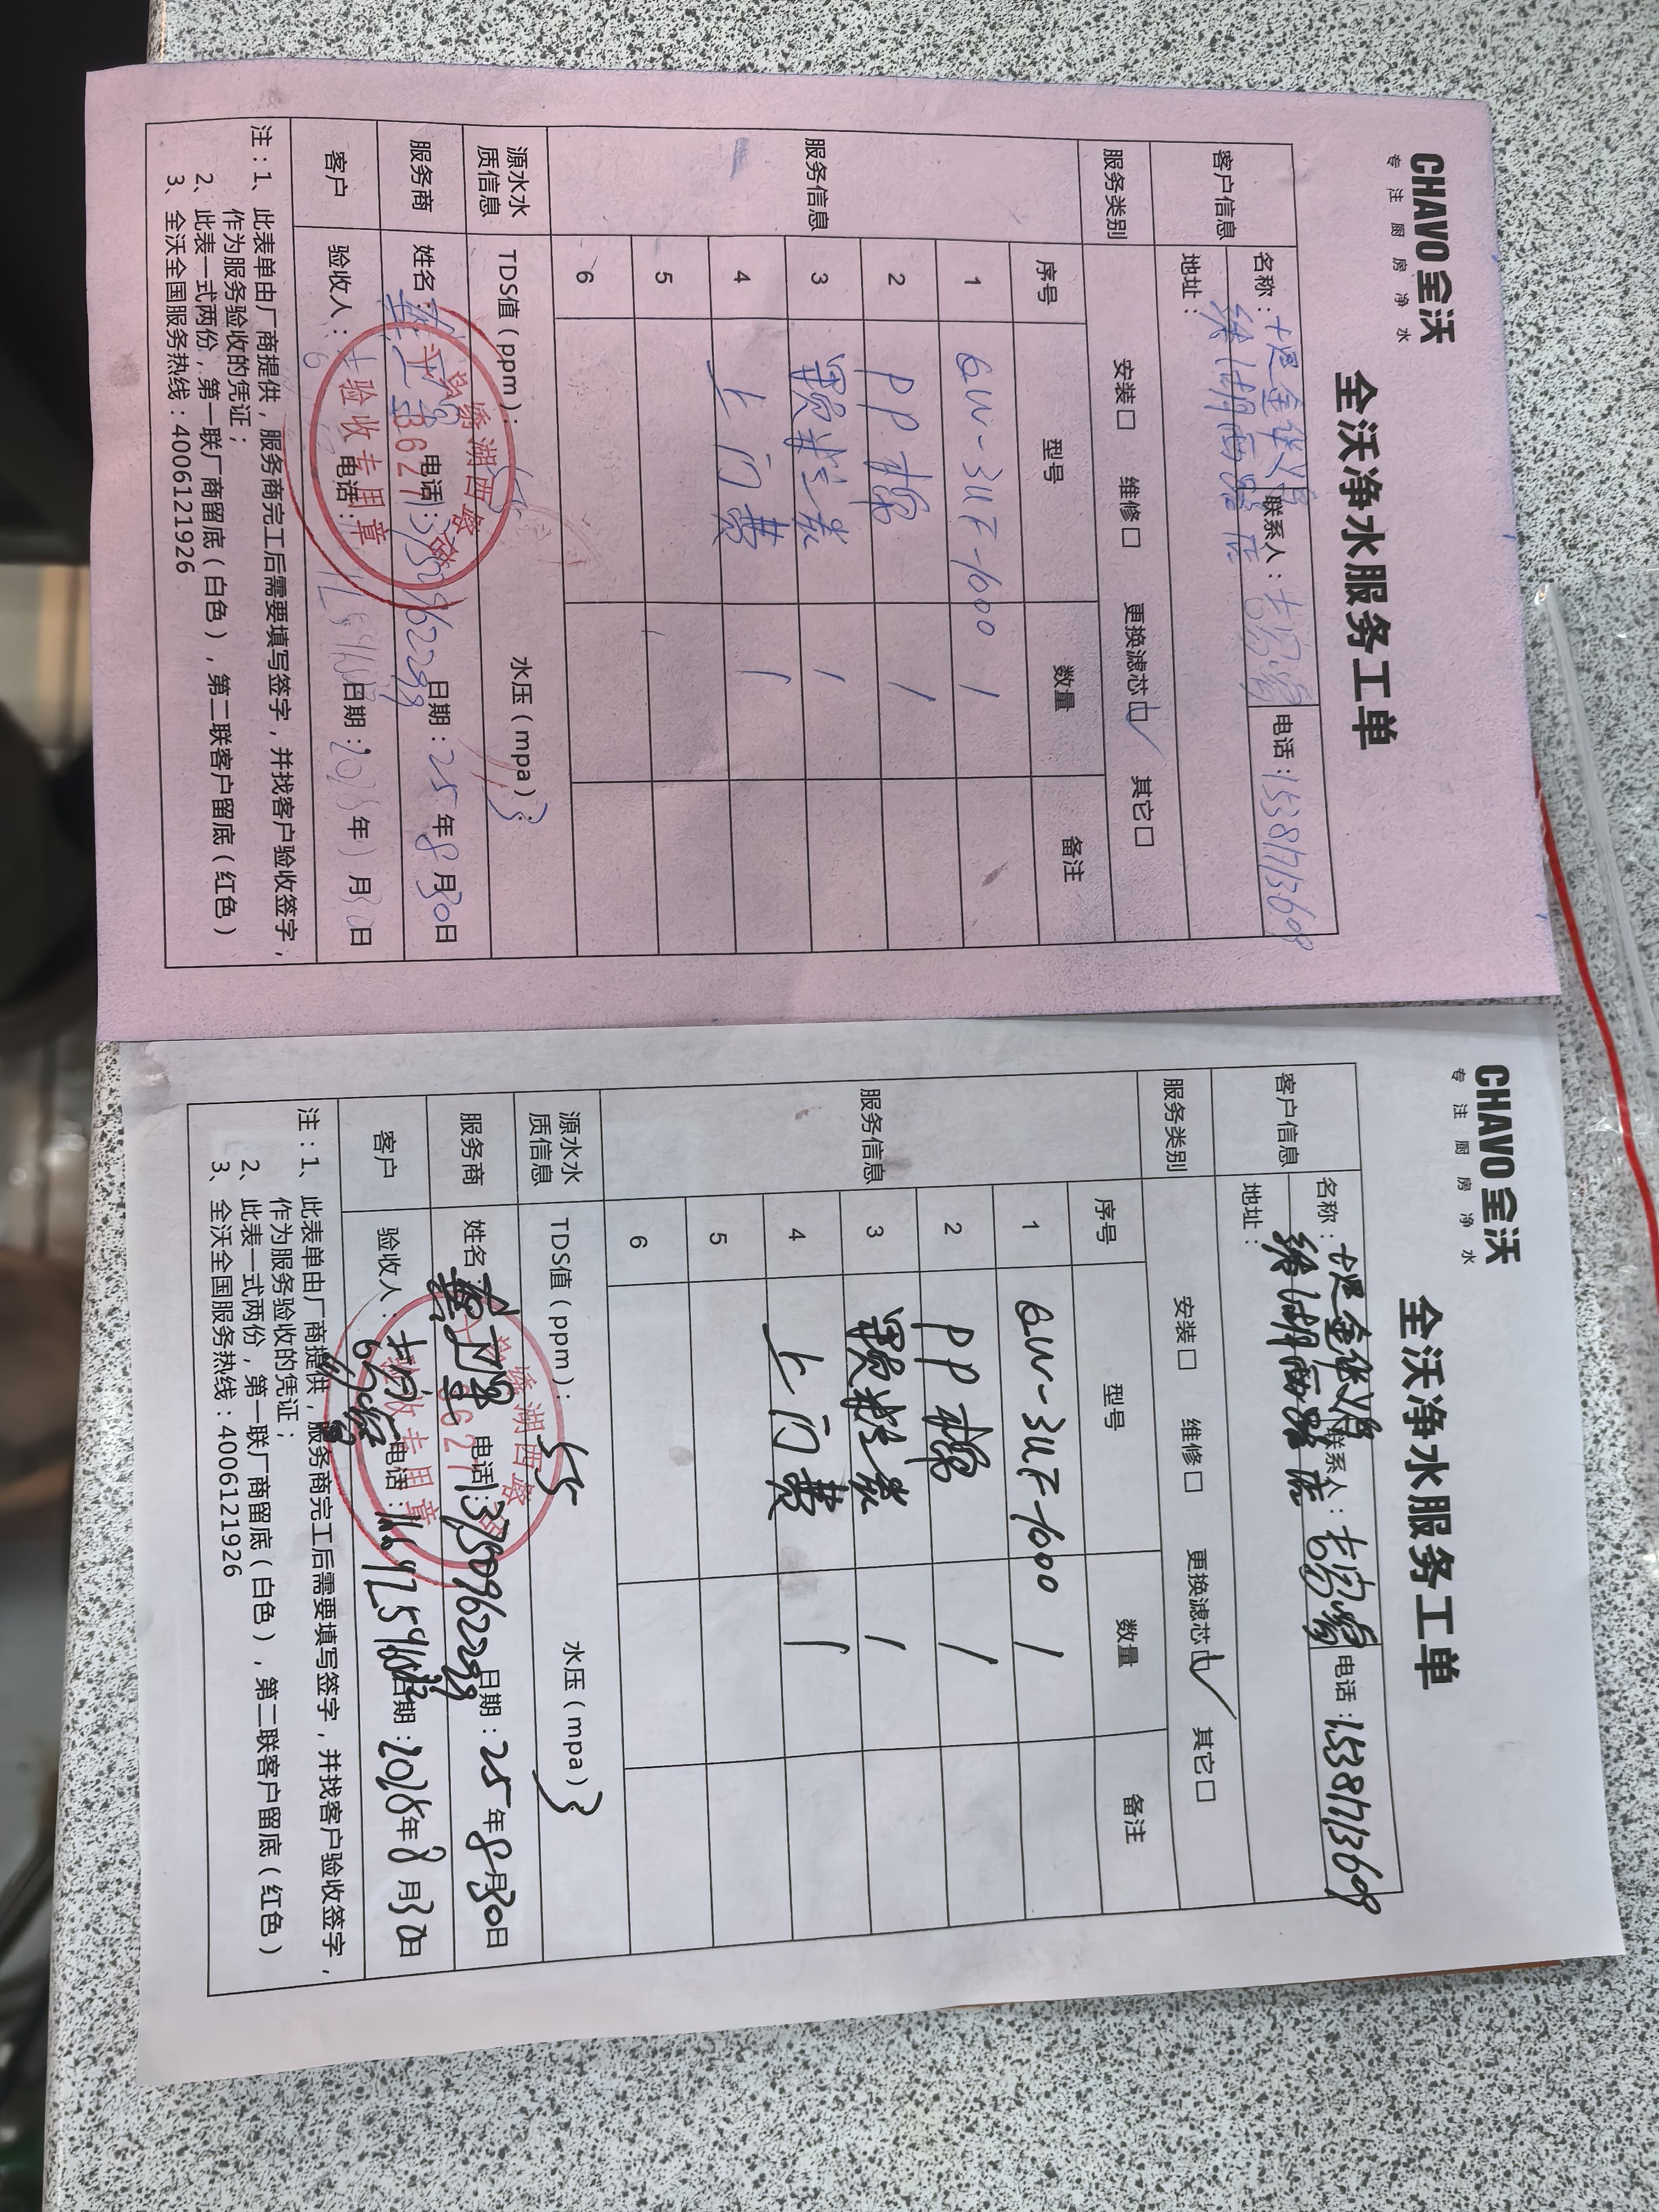 CHAVO 全沃
专注厨房净水
全沃净水服务工单
客户信息
名称：
联系人：
电话：15387173609
地址：
湖西路店
服务类别
安装□ 维修□ 更换滤芯☑ 其它□
服务信息
序号 型号 数量 备注
1 QW-3UF-1000 1
2 PP棉 1
3 1
4 上门费 1
5
6
源水水质信息
TDS值（ppm）：55
水压（mpa）：3
服务商
姓名：
电话：13750962299
日期：25年8月30日
客户
验收人：
电话：
日期：2025年8月30日
绣湖西路店
3627
验收专用章
注：1、此表单由厂商提供，服务商完工后需要填写签字，并找客户验收签字，
作为服务验收的凭证；
2、此表一式两份，第一联厂商留底（白色），第二联客户留底（红色）
3、全沃全国服务热线：4006121926
CHAVO 全沃
专注厨房净水
全沃净水服务工单
客户信息
名称：
联系人：
电话：15387173609
地址：
湖西路店
服务类别
安装□ 维修□ 更换滤芯☑ 其它□
服务信息
序号 型号 数量 备注
1 QW-3UF-1000 1
2 PP棉 1
3 1
4 上门费 1
5
6
源水水质信息
TDS值（ppm）：55
水压（mpa）：3
服务商
姓名：
电话：13750962299
日期：25年8月30日
客户
验收人：
电话：
日期：2025年8月30日
绣湖西路店
3627
验收专用章
注：1、此表单由厂商提供，服务商完工后需要填写签字，并找客户验收签字，
作为服务验收的凭证；
2、此表一式两份，第一联厂商留底（白色），第二联客户留底（红色）
3、全沃全国服务热线：4006121926